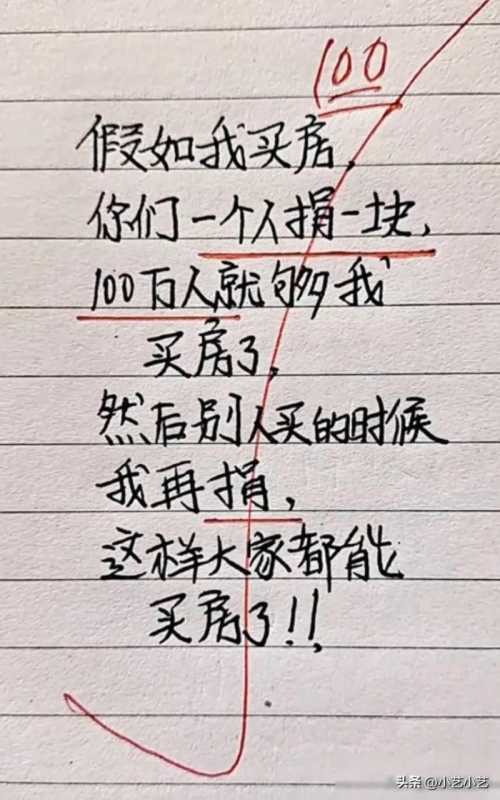 100
假如我买房,
你们一个人捐一块,
100万人就够我
买房了,
然后别人买的时候
我再捐,
这样大家都能
买房了!!,
头条 @小艺小艺